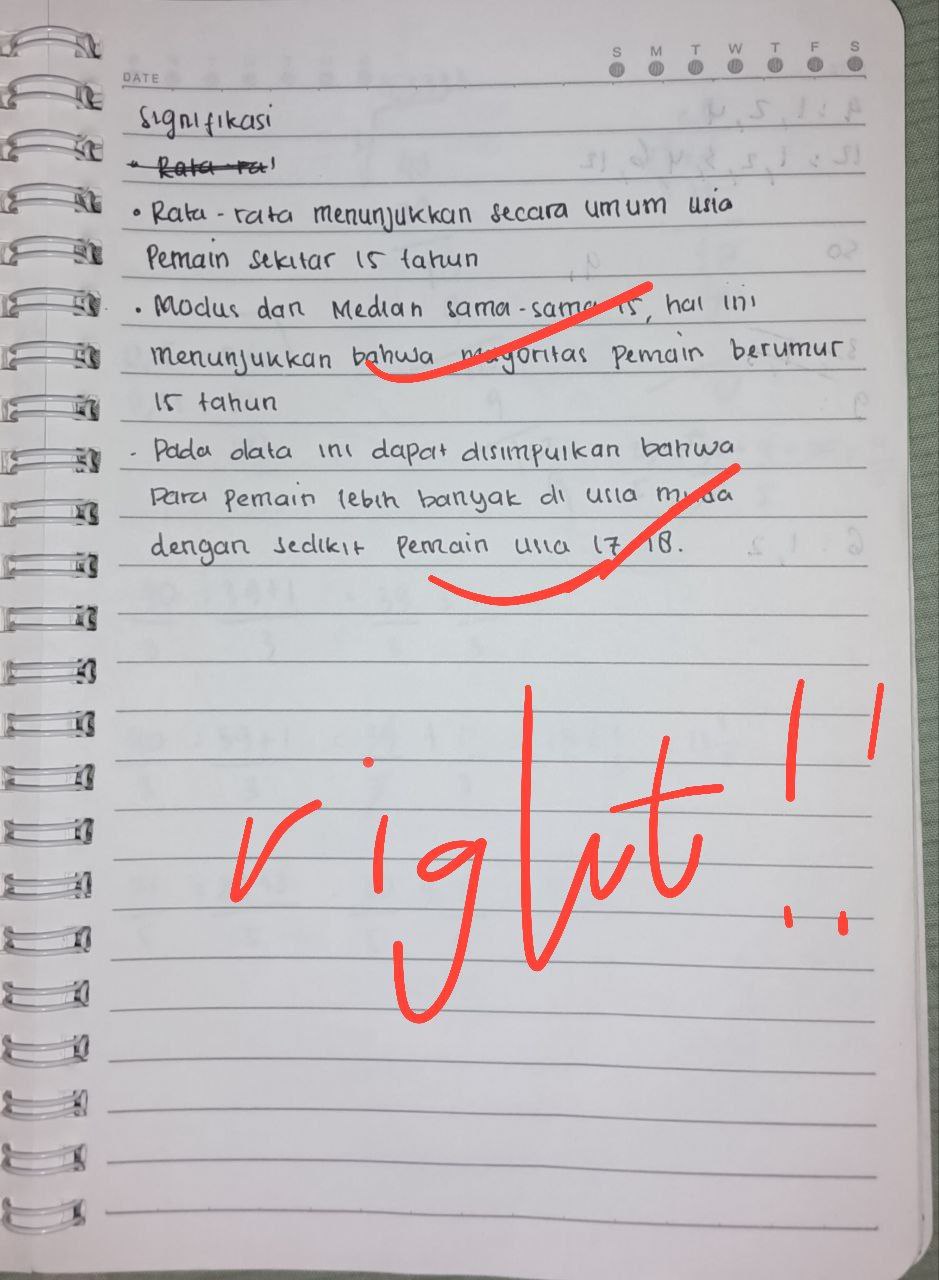 S M T W T F S
DATE
Signifikasi
Rata-ra
• Rata-rata menunjukkan secara umum usia
Pemain sekitar 15 tahun
• Modus dan Median sama-sama 15, hal ini
menunjukkan bahwa mayoritas pemain berumur
15 tahun
- Pada data ini dapat disimpulkan bahwa
Para pemain lebih banyak di usia muda
dengan sedikit pemain usia 17-18.
right!!